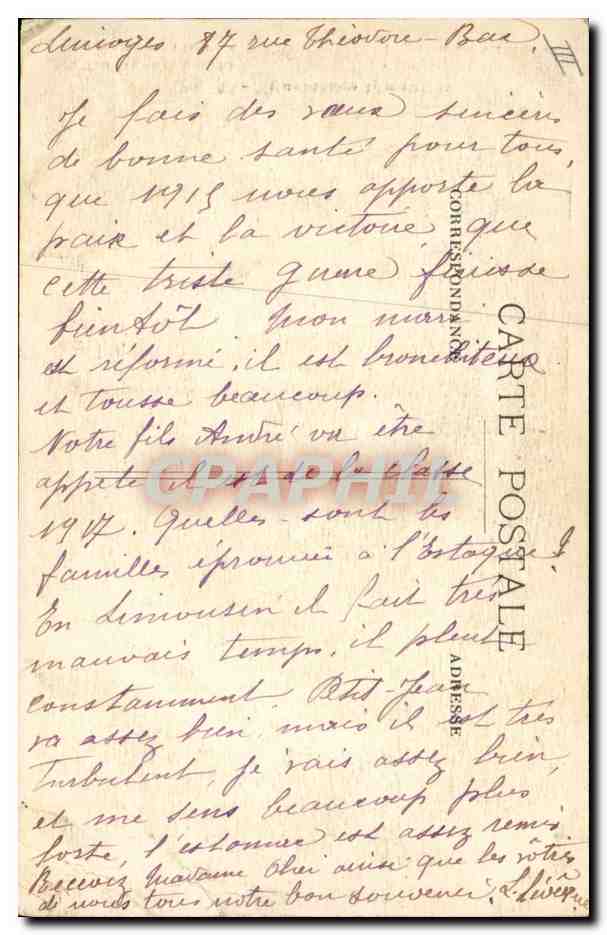 Limoges 87 rue Théodore-Bac. III
Je fais des vœux sincères
de bonne santé pour tous,
que 1915 nous apporte la
paix et la victoire, que
cette triste guerre finisse
bientôt. Mon mari
est réformé, il est bronchiteux
et tousse beaucoup.
Notre fils André va être
appelé il est de la classe
1917. Quelles sont les
familles éprouvées à l'Estaque?
En Limousin il fait très
mauvais temps, il pleut
constamment. Petit-Jean
va assez bien, mais il est très
turbulent, je vais assez bien,
et me sens beaucoup plus
forte, l'estomac est assez remis
Recevez Madame ainsi que les vôtres
de nous tous notre bon souvenir.
CORRESPONDANCE
CARTE POSTALE
ADRESSE
CPAPHIL